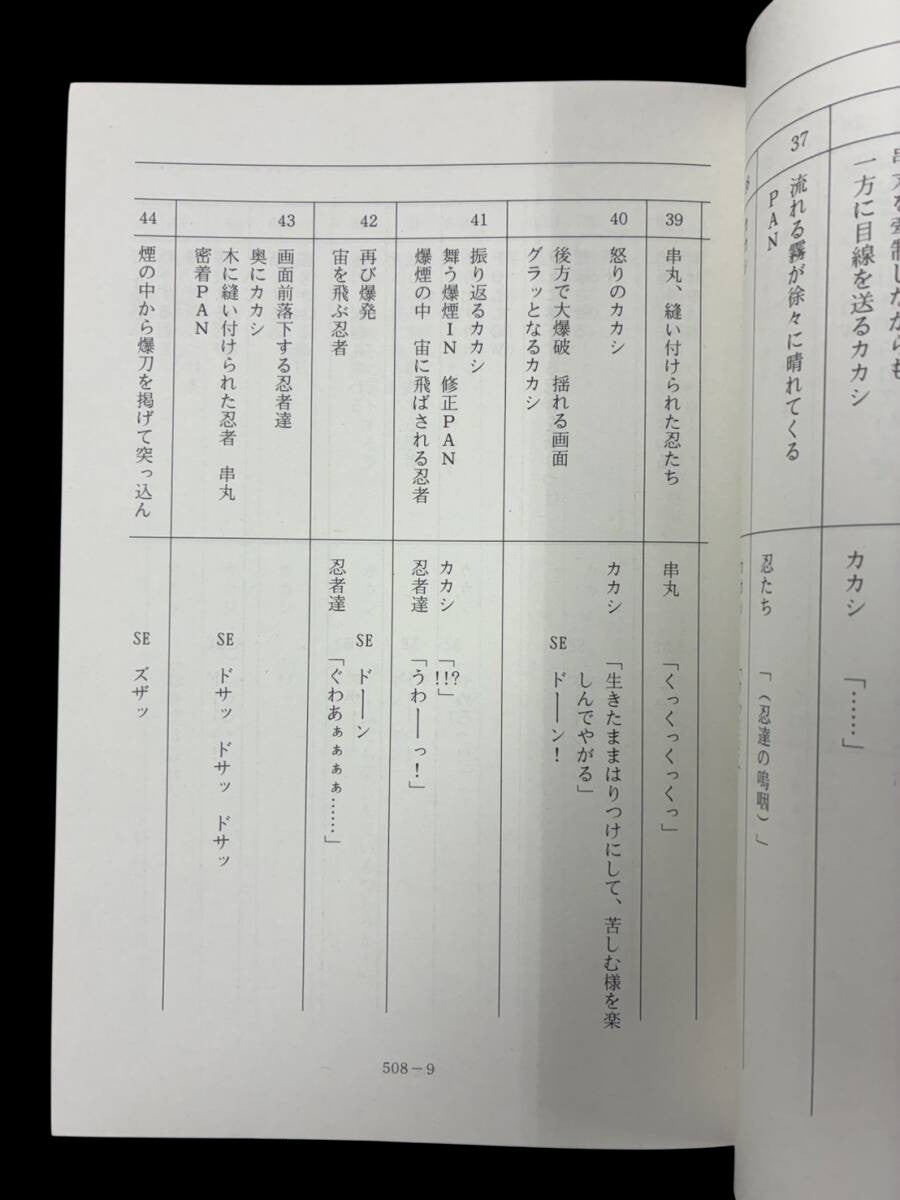 一方に目線を送るカカシ
カカシ 「……」
37
流れる霧が徐々に晴れてくる
PAN
忍たち 「（忍達の嗚咽）」
39
串丸、縫い付けられた忍たち
串丸 「くっくっくっくっ」
40
怒りのカカシ
カカシ 「生きたままはりつけにして、苦しむ様を楽
しんでやがる」
後方で大爆破 揺れる画面
SE ドーーン！
グラッとなるカカシ
41
振り返るカカシ
カカシ 「!!?」
舞う爆煙IN 修正PAN
爆煙の中 宙に飛ばされる忍者
忍者達 「うわーーっ！」
42
再び爆発
SE ドーーン
宙を飛ぶ忍者
忍者達 「ぐわあぁぁぁぁ……」
43
画面前落下する忍者達
奥にカカシ
木に縫い付けられた忍者 串丸
SE ドサッ ドサッ ドサッ
密着PAN
44
煙の中から爆刀を掲げて突っ込ん
SE ズザッ
508－9